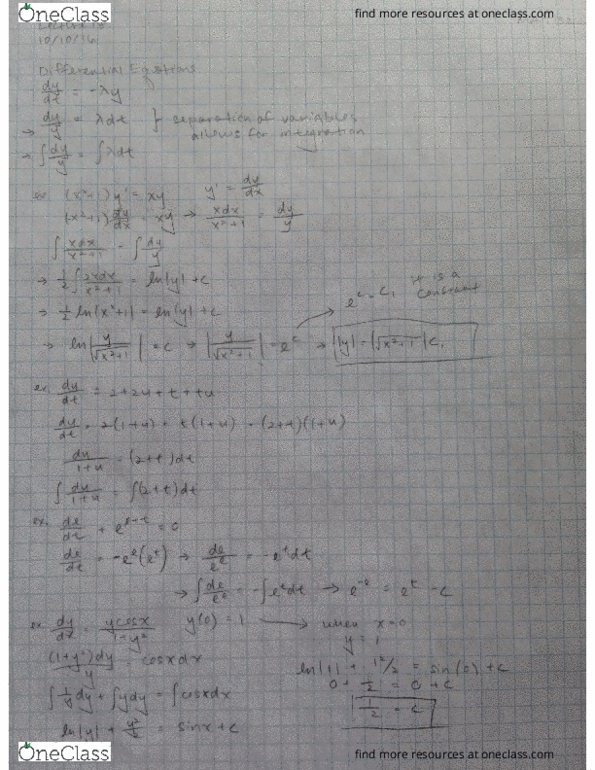 OneClass
find more resources at oneclass.com
10/10/16
Differential Equations
dy/dt = -λy
→ dy/y = λdt } separation of variables
allows for integration
→ ∫dy/y = ∫λdt
ex y' = xy y' = dy/dx
(x²+1) dy/dx = xy → xdx/x²+1 = dy/y
∫ xdx/x²+1 = ∫ dy/y
→ 1/2 ∫ 2xdx/x²+1 = ln|y| + c
→ 1/2 ln|x²+1| = ln|y| + c
is a
constant
→ ln|y/√x²+1| = c → |y/√x²+1| = eᶜ → |y| = |√x²+1| C₁
ex du/dt = 2+2u+t+tu
du/dt = 2(1+u) + t(1+u) = (2+t)(1+u)
du/1+u = (2+t)dt
∫ du/1+u = ∫(2+t)dt
ex. = 0
→ -eᵗdt
→ → = eᵗ - c
ex dy/dx = ycosx/1+y² y(0) = 1 → when x=0
y=1
(1+y²)dy/y = cosxdx
ln|1| + 1²/2 = sin(0) + c
∫ 1/y dy + ∫ydy = ∫cosxdx
0 + 1/2 = 0 + c
1/2 = c
ln|y| + y²/2 = sinx + c
OneClass
find more resources at oneclass.com